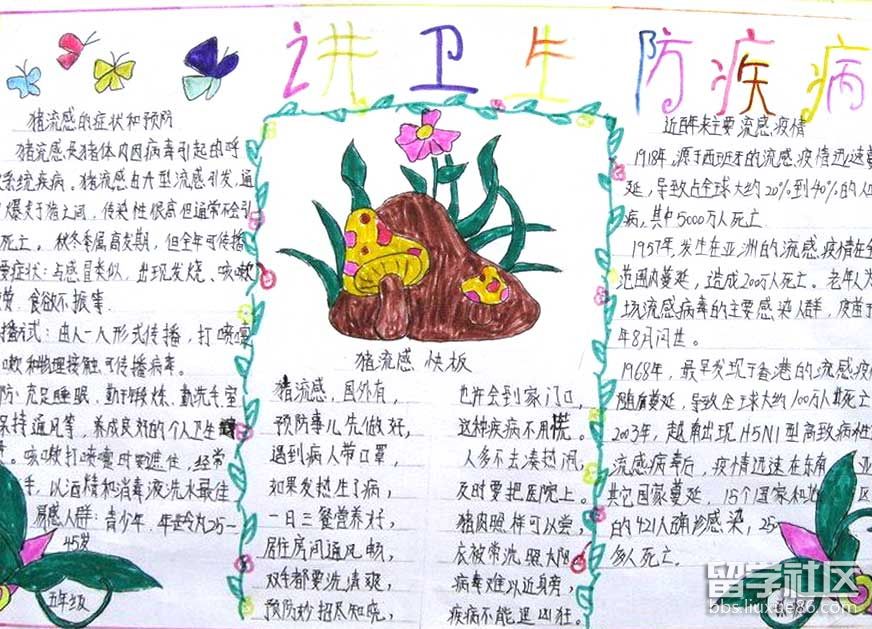 讲卫生防疾病
猪流感的症状和预防
猪流感是猪体内因病毒引起的呼
系统疾病。猪流感由A型流感引发,通
爆发于猪之间,传染性很高但通常不会引
死亡。秋冬季属高发期,但全年可传播
要症状:与感冒类似,出现发烧、咳嗽
食欲不振等.
播方式:由人—人形式传播,打喷嚏
嗽和物理接触可传播病毒。
防:充足睡眠,勤于锻炼,勤洗手室
保持通风等,养成良好的个人卫生
。咳嗽打喷嚏时要遮住,经常
手,以酒精和消毒液洗水最佳
易感人群:青少年.年龄为25-
45岁
五年级
猪流感 快板
猪流感,国外有,
预防事儿先做好,
遇到病人带口罩,
如果发热生了病,
一日三餐营养好,
居住房间通风畅,
双手都要洗清爽,
预防妙招尽知晓,
也许会到家门口,
这种疾病不用慌。
人多不去凑热闹,
及时要把医院上。
猪肉照样可以尝,
衣被常洗照太阳
病毒难以近身旁,
疾病不能逞凶狂。
近百年来主要流感疫情
1918年,源于西班牙的流感疫情迅速蔓
延,导致占全球大约20%到40%的人
病,其中5000万人死亡.
1957年,发生在亚洲的流感疫情在全
范围内蔓延,造成200万人死亡。老年人为
场流感病毒的主要感染人群,疫苗于
年8月问世。
1968年,最早发现于香港的流感疫
随后蔓延,导致全球大约100万人死亡
2003年,越南出现H5N1型高致病性
流感病毒后,疫情迅速在东南亚
其它国家蔓延,15个国家和地区
的421人确诊感染,25
多人死亡.
留学社区
bbs.liuxue86.com